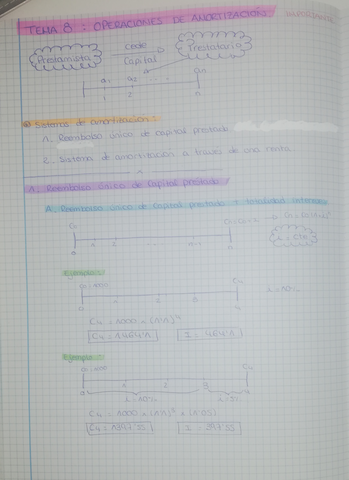 TEMA 8 : OPERACIONES DE AMORTIZACIÓN
Prestamista Cede Capital Prestatario
a1 a2 ... an
1 2 n
Sistemas de amortización :
1. Reembolso único de capital prestado
2. Sistema de amortización a través de una renta
1. Reembolso único de Capital prestado
A. Reembolso único de capital prestado + totalidad intereses
C0
0 1 2 n-1 n
Ejemplo :
C0 = 1000 C4 i = 10%
0 1 2 3 4
C4 = 1000 x (1'1)^4
C4 = 1464'1 I = 464'1
Ejemplo :
C0 = 1000 C4
0 1 2 3 4
i = 10% i = 5%
C4 = 1000 x (1'1)^3 x (1'05)
C4 = 1397'55 I = 397'55